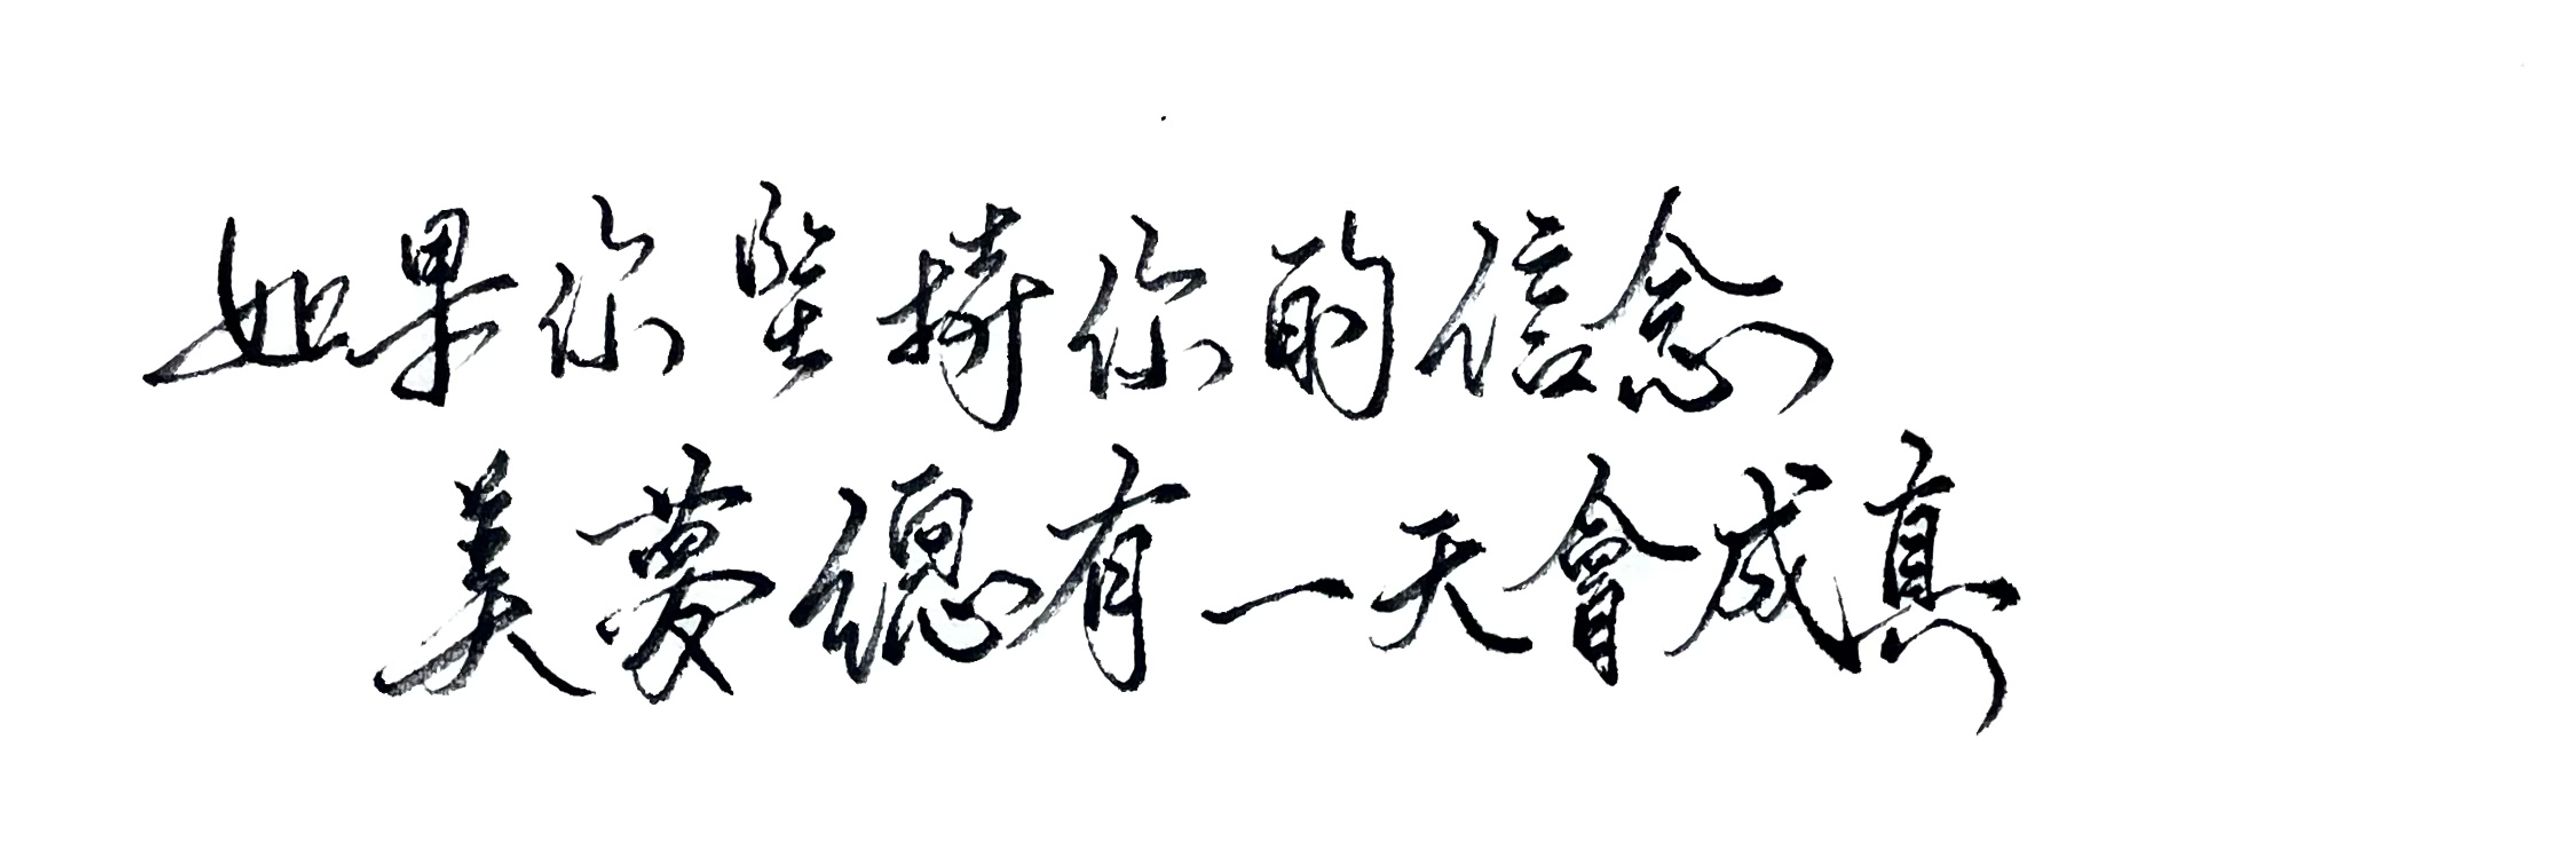 如果你堅持你的信念
美夢總有一天會成真